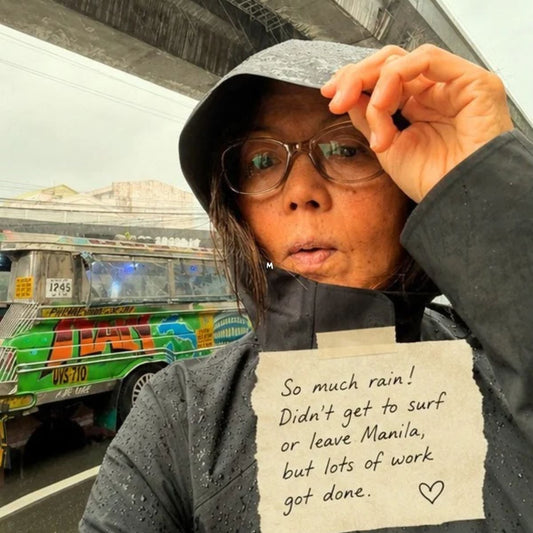 1245
UVS 710
M
So much rain!
Didn't get to surf
or leave Manila,
but lots of work
got done.